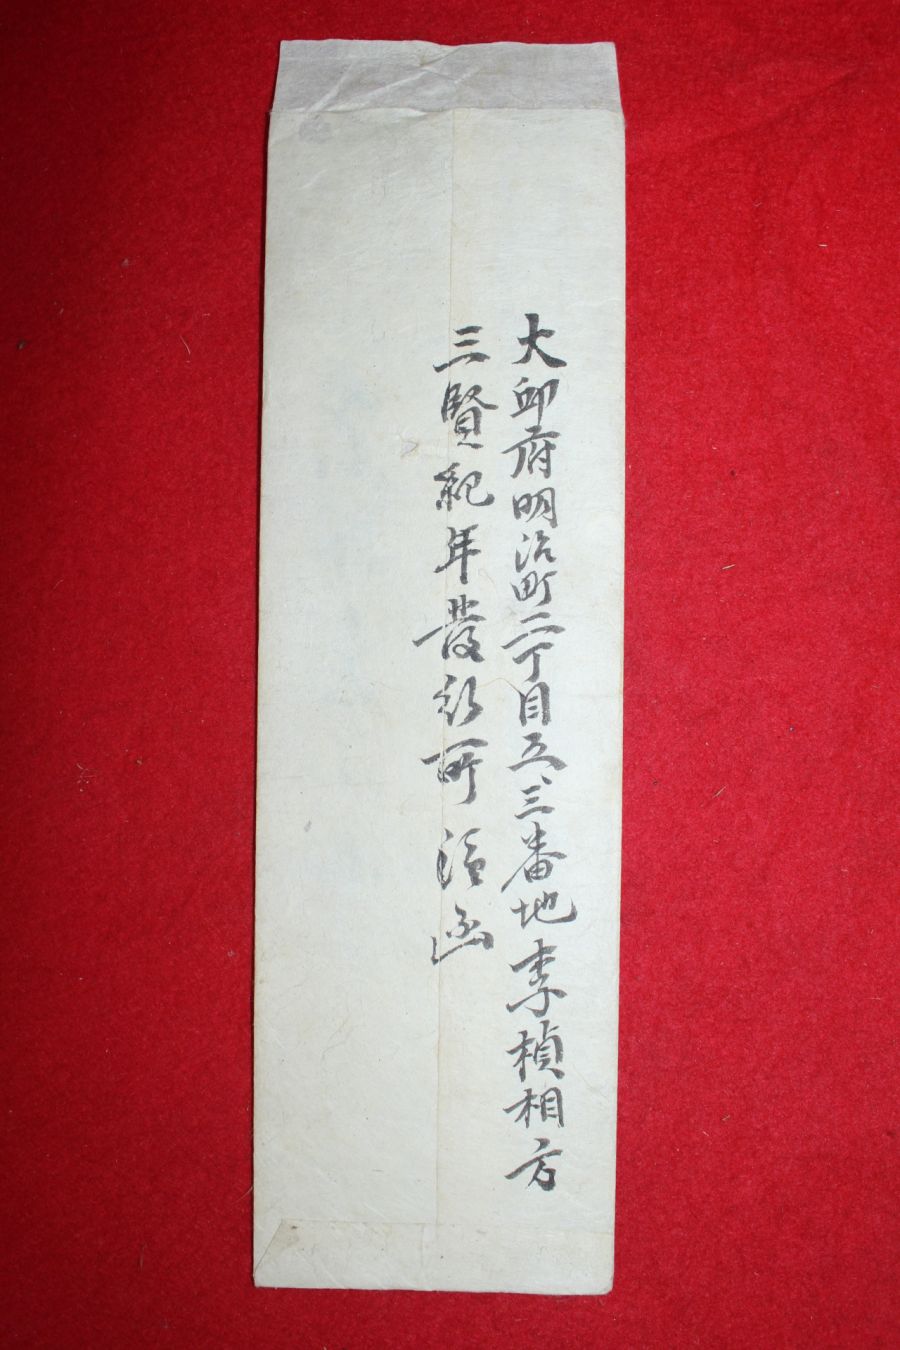 大邱府明治町二丁目五三番地李楨相方
三賢紀年發行所 函